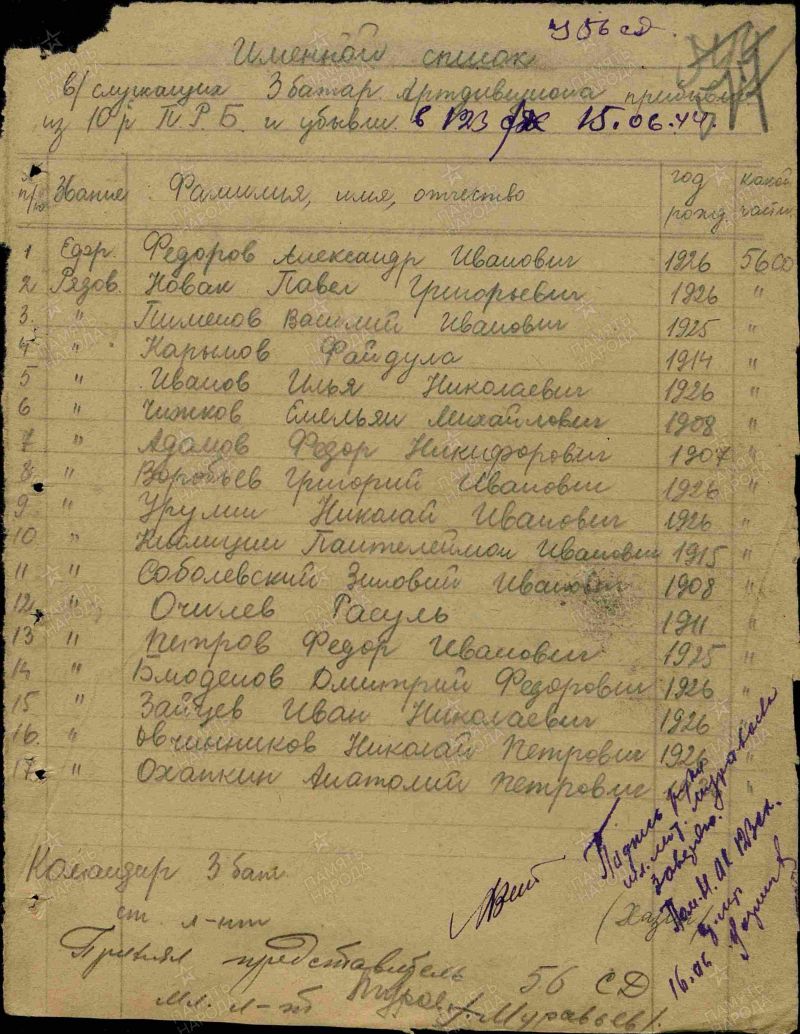 56 сд
Именной список
в/служащих 3 батар. Артдивизиона прибывш
из 10 р П.Р.Б и убывш. в 123 15.06.44.
№ п/п Звание Фамилия, имя, отчество год рожд какой части
1 Ефр. Федоров Александр Иванович 1926 56 СД
2 Рядов. Новак Павел Григорьевич 1926 "
3. " Пименов Василий Иванович 1925 "
4 " Карымов Файдула 1914 "
5 " Иванов Илья Николаевич 1926 "
6 " Чижков Емельян Михайлович 1908 "
7 " Адамов Федор Никифорович 1907 "
8 " Воробьев Григорий Иванович 1926 "
9 " Урулин Николай Иванович 1926 "
10 " Пантелеймон Иванович 1915 "
11 " Соболевский Зиновий Иванович 1908 "
12 " Очилев Расуль 1911 "
13 " Петров Федор Иванович 1925 "
14 " Дмитрий Федорович 1926 "
15 " Зайцев Иван Николаевич 1926 "
16. " Овчинников Николай Петрович 1926 "
17 " Охапкин Анатолий Петрович "
Командир 3 бат
ст. л-нт
Принял представитель 56 СД
мл. л-т /Муравьев/.
Подпись
мл. лейт. Муравьева
заверяю.
16.06